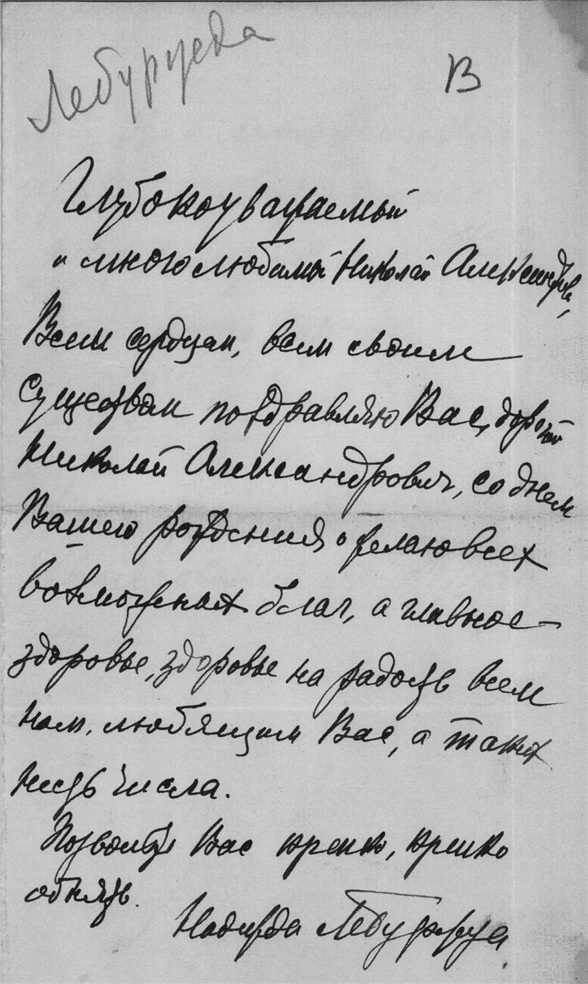 В
Глубокоуважаемый
и многолюбимый Николай Александрович,
Всем сердцем, всем своим
существом поздравляю Вас, дорогой
Николай Александрович, со днем
Вашего рождения и желаю всех
возможных благ, а главное —
здоровье, здоровье на радость всем
нам, любящим Вас, а таких
несть числа.
Позвольте Вас крепко, крепко
обнять.
Надежда